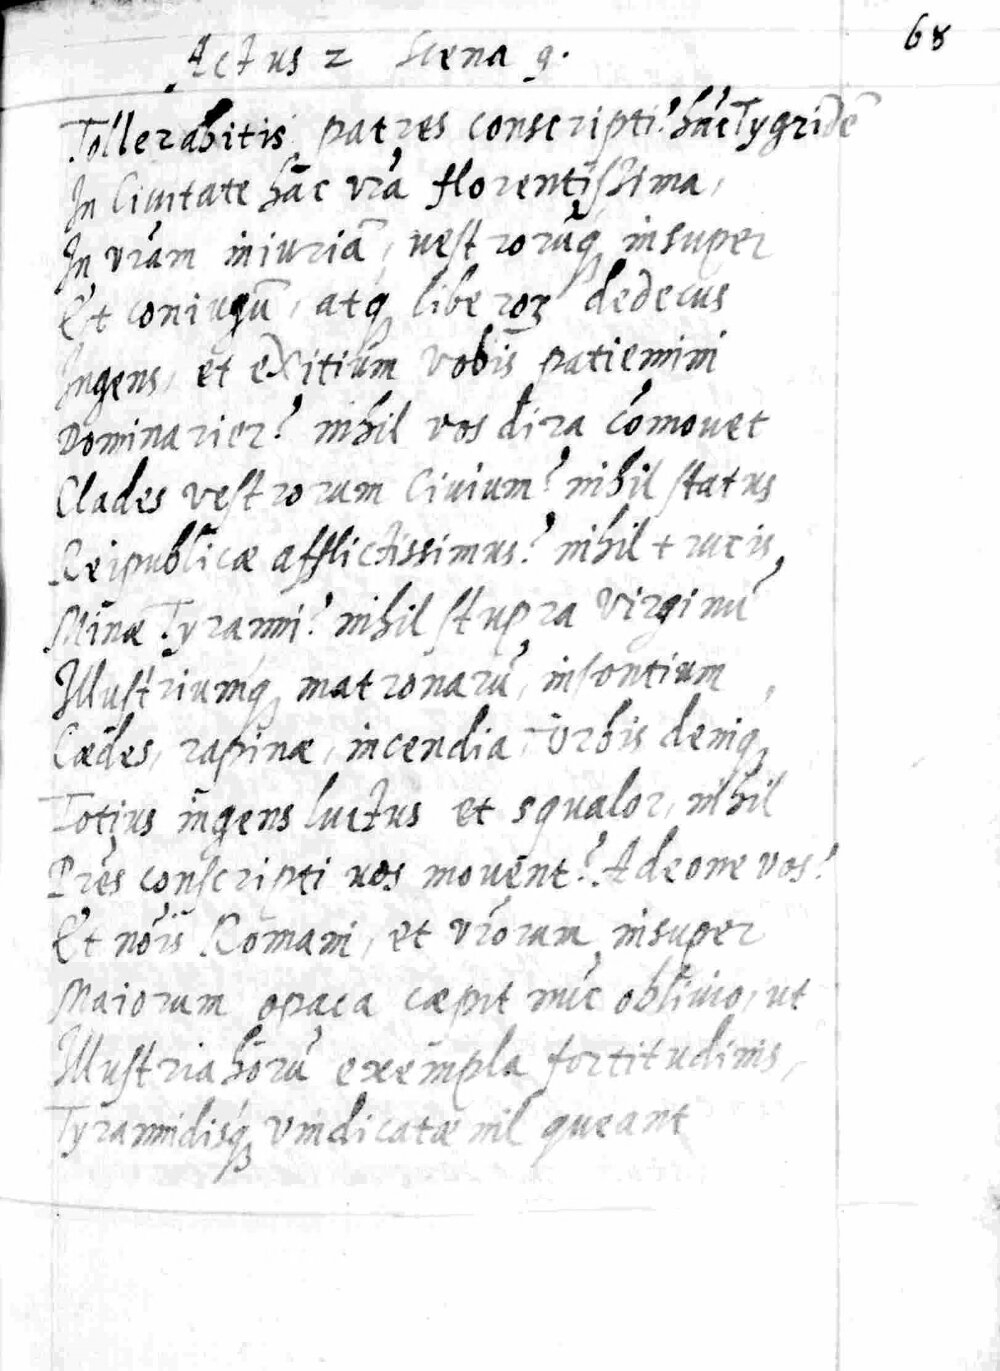 68
Actus 2 Scena 9.
Tollerabitis patres conscripti? hāc Tygridē
In Ciuitate hāc vrā florentissima,
In vrām iniuriā, uestrorūq; insuper
Et coniugū, atq; liberoꝝ dedecus
Ingens, et exitium vobis patiemini
Dominarier? nihil vos dira cōmouet
Clades vestrorum Ciuium? nihil status
Reipublicæ afflictissimus? nihil trucis
Minæ Tyranni? nihil stupra Virginū
Illustriumq; matronarū, insontium
Cædes, rapinæ, incendia, Vrbis deniq;
Totius ingens luctus et squalor, nihil
Prēs conscripti uos mouent? Adeone vos?
Et nōris Romani, et vrōrum insuper
Maiorum opaca cæpit nūc obliuio, ut
Illustria horū exempla fortitudinis,
Tyrannidisq; vindicatæ nil queant